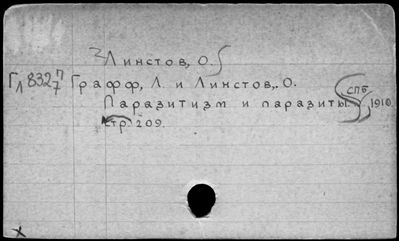 Линстов, О.
Гл 832 п/7 Графф, Л. и Линстов, О.
Паразитизм и паразиты. СПБ. 1910.
стр. 209.
х